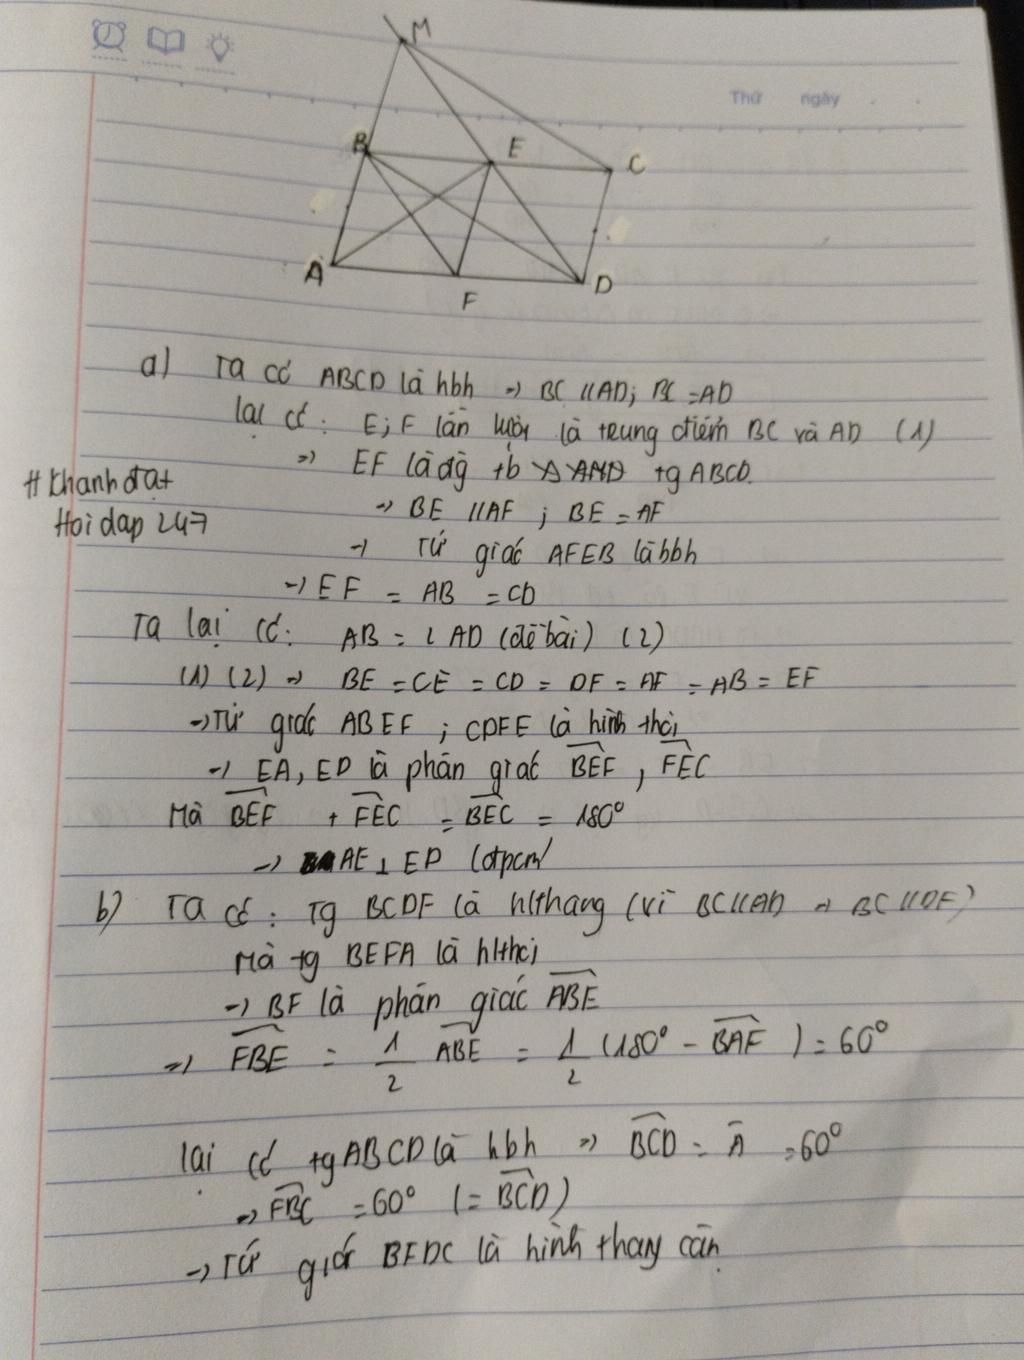 Thứ ngày
M
B
E
C
A
F
D
a) Ta có ABCD là hbh => BC // AD; BC = AD
lại có: E; F lần lượt là trung điểm BC và AD (1)
=> EF là đg tb tg ABCD.
-> BE // AF ; BE = AF
# Khanhđạt
Hoidap 247
-> Tứ giác AFEB là hbh
-> EF = AB = CD
Ta lại có: AB = 2 AD (đề bài) (2)
(1) (2) => BE = CE = CD = DF = AF = AB = EF
-> Tứ giác ABEF ; CDFE là hình thoi
-> EA, ED là phân giác BEF, FEC
Mà BEF + FEC = BEC = 180°
-> AE ⊥ ED (đpcm
b) Ta có: Tg BCDF là h/thang (vì BC // AD => BC // DF)
Mà tg BEFA là h/thoi
-> BF là phân giác ABE
=> FBE = 1/2 ABE = 1/2 (180° - BAF) = 60°
lại có tg ABCD là hbh => BCD = A = 60°
=> FBC = 60° (= BCD)
-> Tứ giác BFDC là hình thang cân